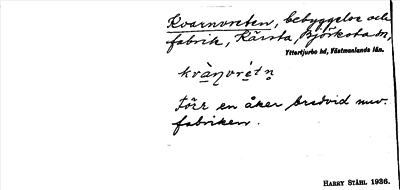 Kvarnvreten, bebyggelse och
fabrik, Kärsta, Björksta sn,
Yttertjurbo hd, Västmanlands län.
kvàɳvrétn̥
Förr en åker bredvid nuv.
fabriken.
HARRY STÅHL 1936.